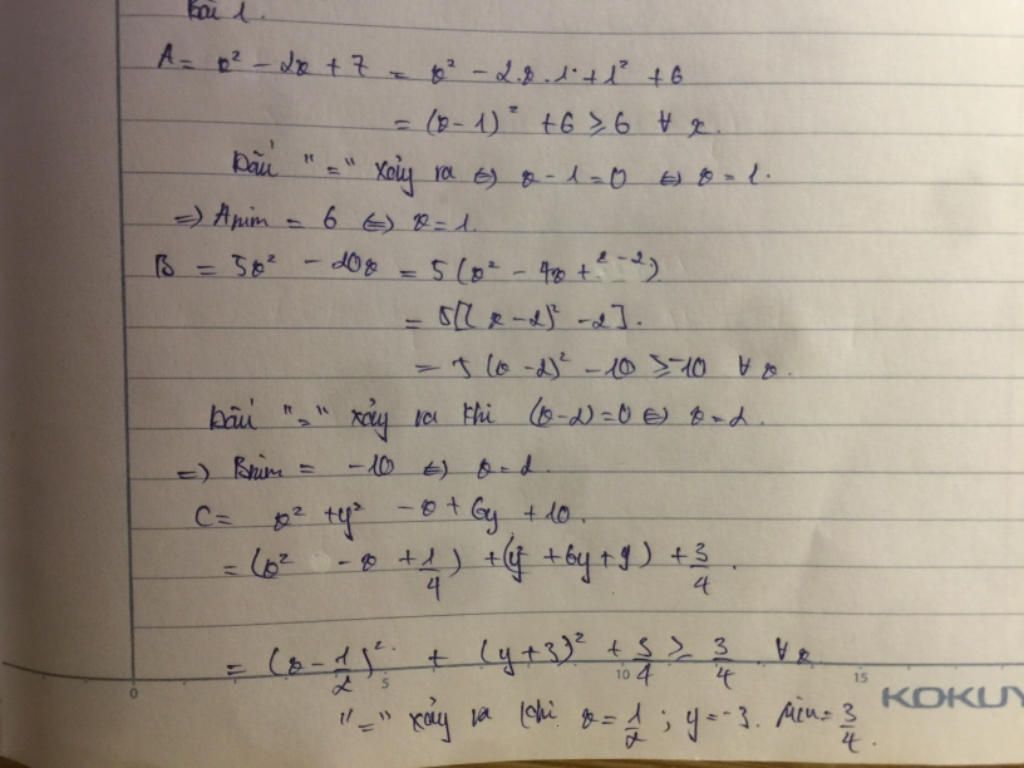 Bài 1.
A = x² - 2x + 7 = x² - 2.x.1 + 1² + 6
= (x-1)² + 6 ≥ 6 ∀ x.
Dấu "=" xảy ra ⇔ x - 1 = 0 ⇔ x = 1.
⇒ Amin = 6 ⇔ x = 1.
B = 5x² - 20x = 5(x² - 4x + 2 - 2)
= 5[(x-2)² - 2].
= 5(x-2)² - 10 ≥ -10 ∀ x.
Dấu "=" xảy ra khi (x-2) = 0 ⇔ x = 2.
⇒ Bmin = -10 ⇔ x = 2.
C = x² + y² - x + 6y + 10.
= (x² - x + 1/4) + (y² + 6y + 9) + 3/4.
= (x - 1/2)² + (y+3)² + 3/4 ≥ 3/4 ∀ x
0 5 10 15 KOKUY
"=" xảy ra khi x = 1/2; y = -3. Min = 3/4.